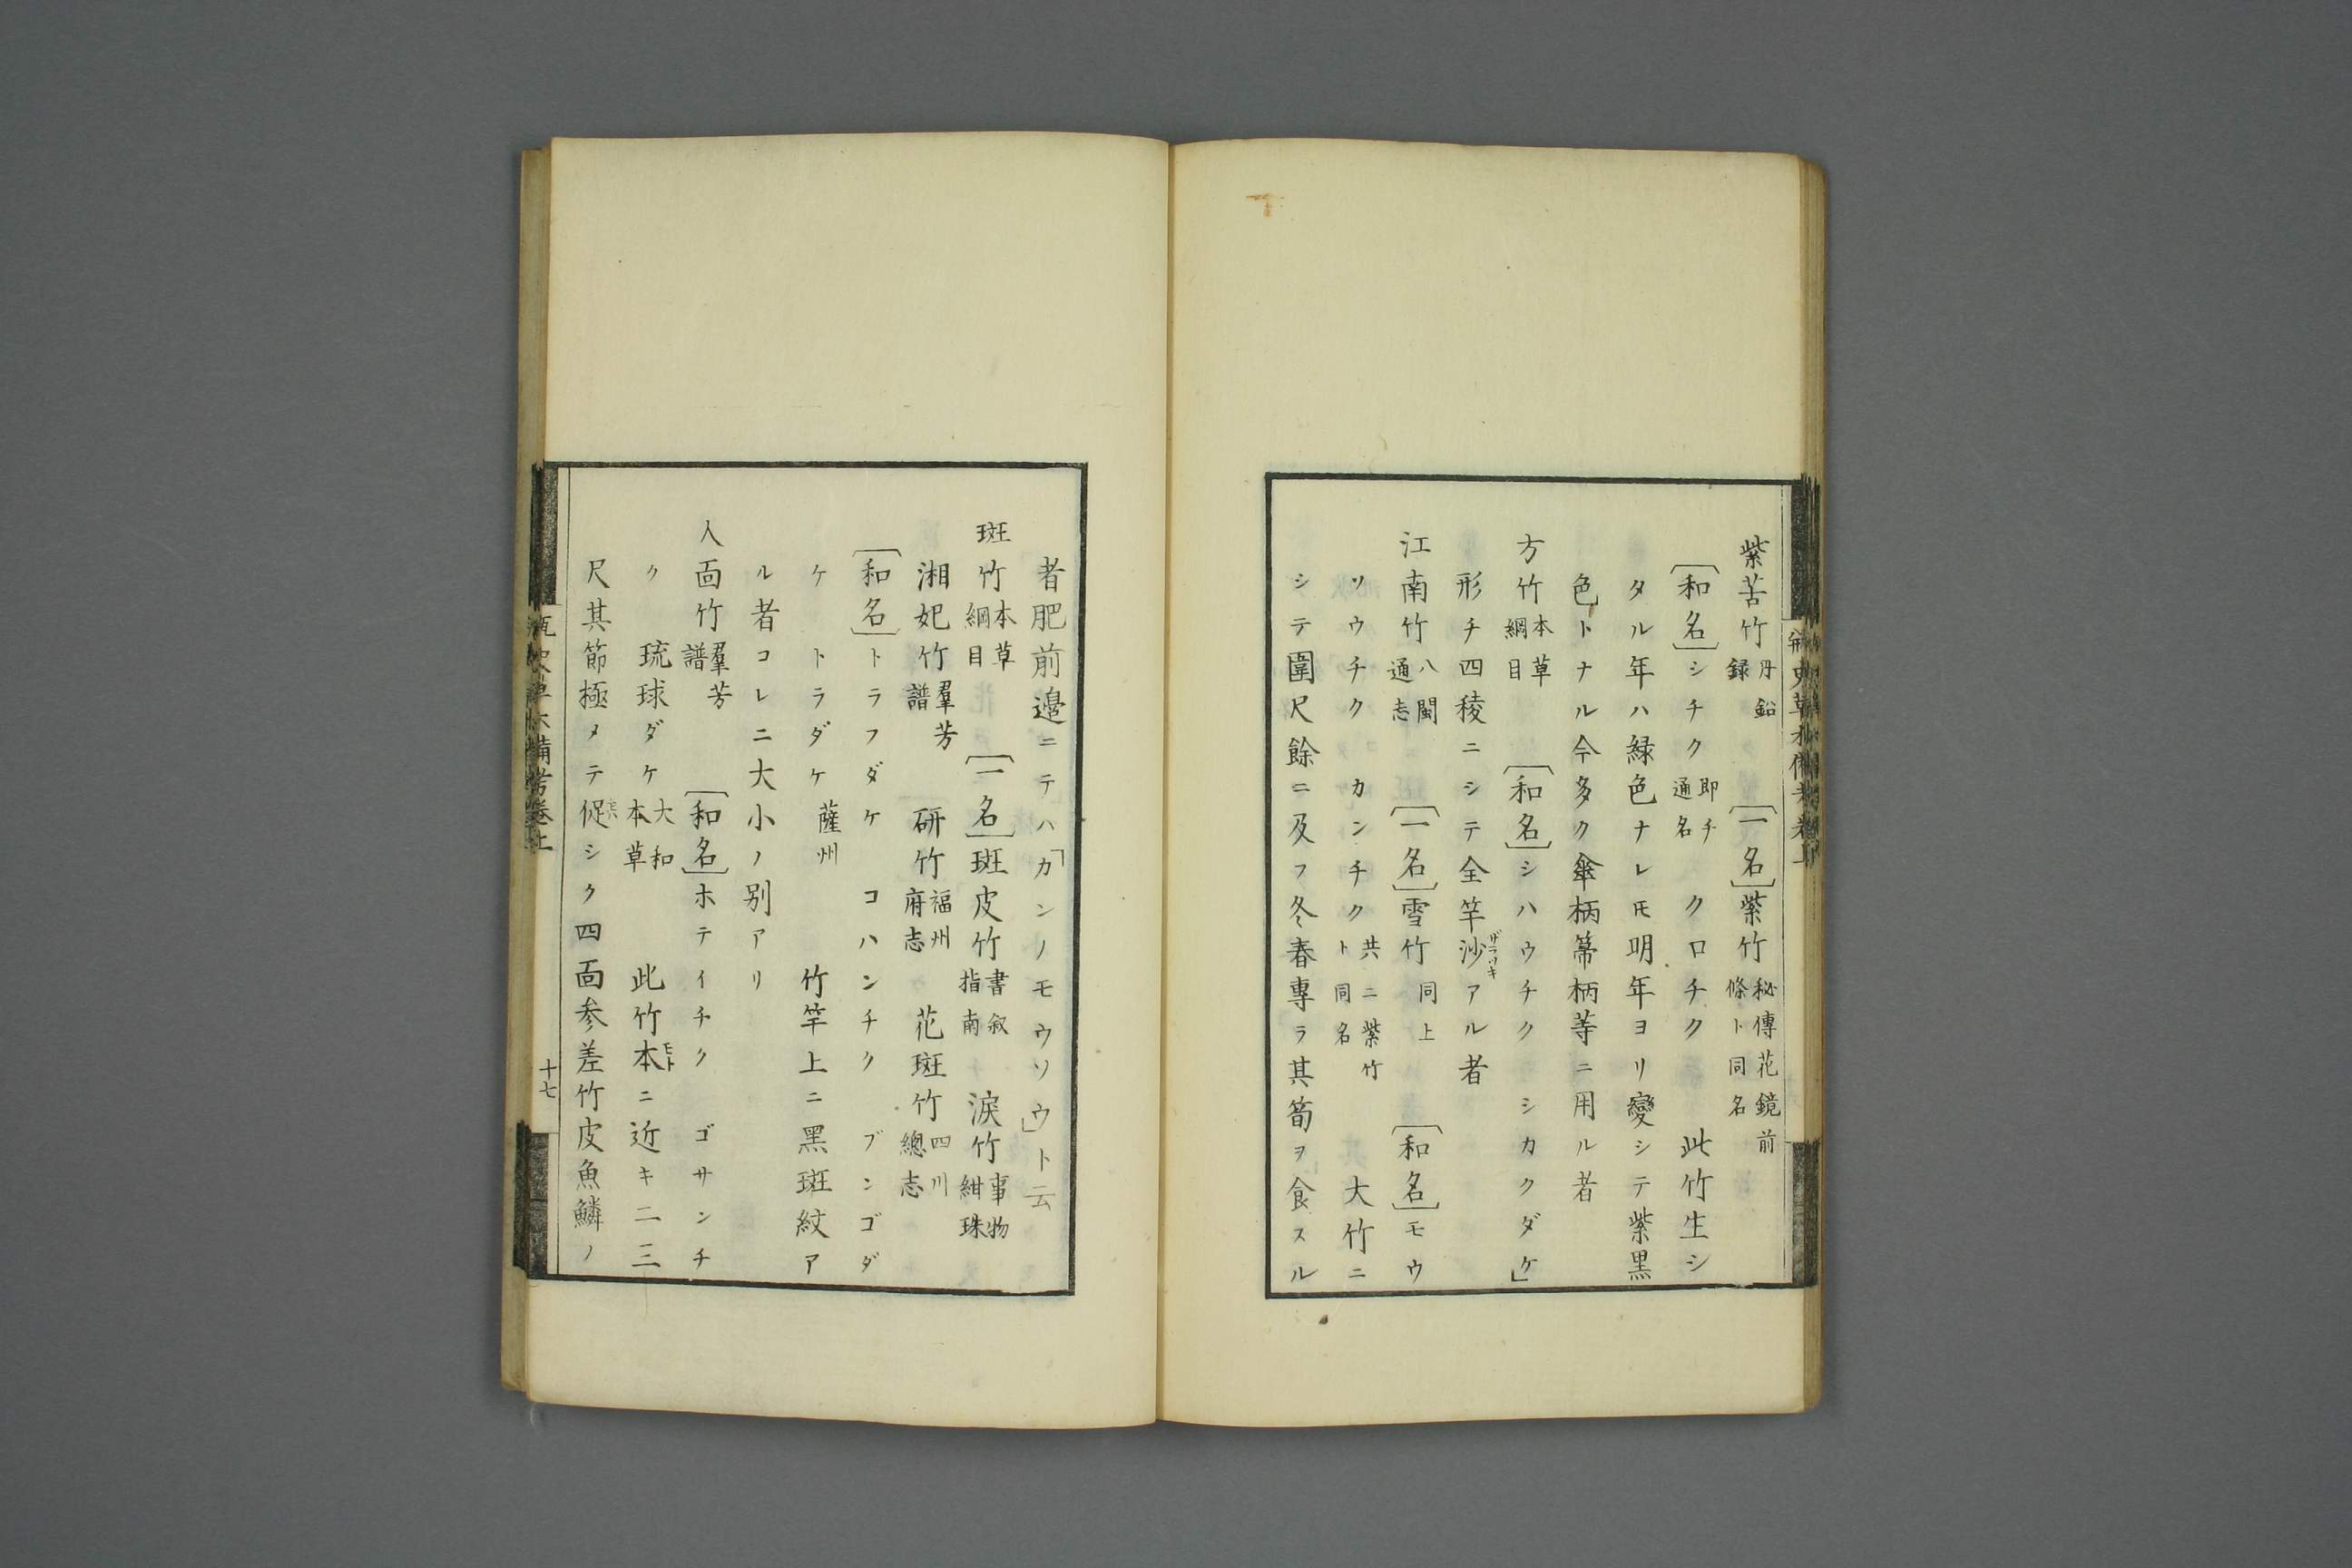 紫苦竹丹鉛録 〔一名〕紫竹秘傳花鏡前條ト同名
〔和名〕シチク即チ通名 クロチク 此竹生シ
タル年ハ緑色ナレ𪜈明年ヨリ變シテ紫黒
色トナル今多ク傘柄箒柄等ニ用ル者
方竹本草綱目 〔和名〕シハウチク シカクダケ」
形チ四稜ニシテ全竿沙ザラツキアル者
江南竹八閩通志 〔一名〕雪竹同上 〔和名〕モウ
ソウチク カンチク共ニ紫竹ト同名 大竹ニ
シテ圍尺餘ニ及フ冬春專ラ其筍ヲ食スル
者肥前邊ニテハ「カンノモウソウ」ト云
斑竹本草綱目 〔一名〕斑皮竹書叙指南 淚竹事物紺珠
湘妃竹羣芳譜 研竹福州府志 花斑竹四川總志
〔和名〕トラフダケ コハンチク ブンゴダ
ケ トラダケ薩州 竹竿上ニ黑斑紋ア
ル者コレニ大小ノ別アリ
人面竹羣芳譜 〔和名〕ホテイチク ゴサンチ
ク 琉球ダケ大和本草 此竹本モトニ近キ二三
尺其節極メテ促シク四面参差竹皮魚鱗ノ
十七